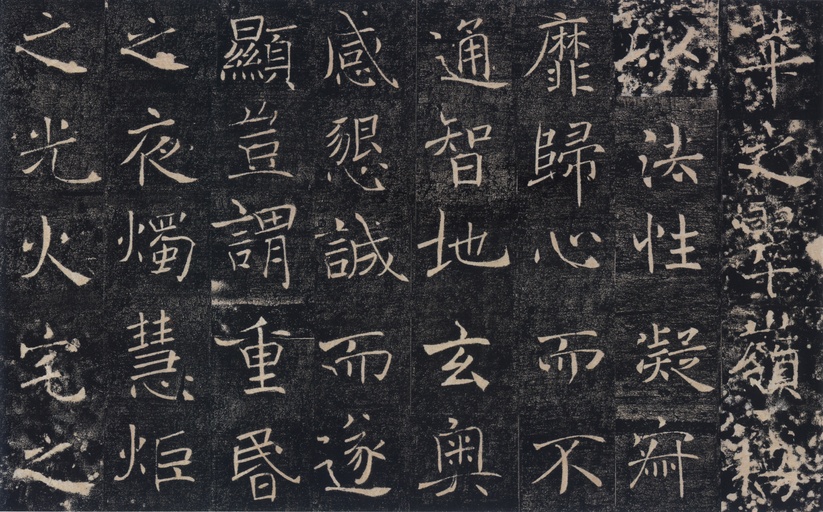 華之翠嶺竊
以法性凝寂
靡歸心而不
通智地玄奧
感懇誠而遂
顯豈謂重昬
之夜燭慧炬
之光火宅之